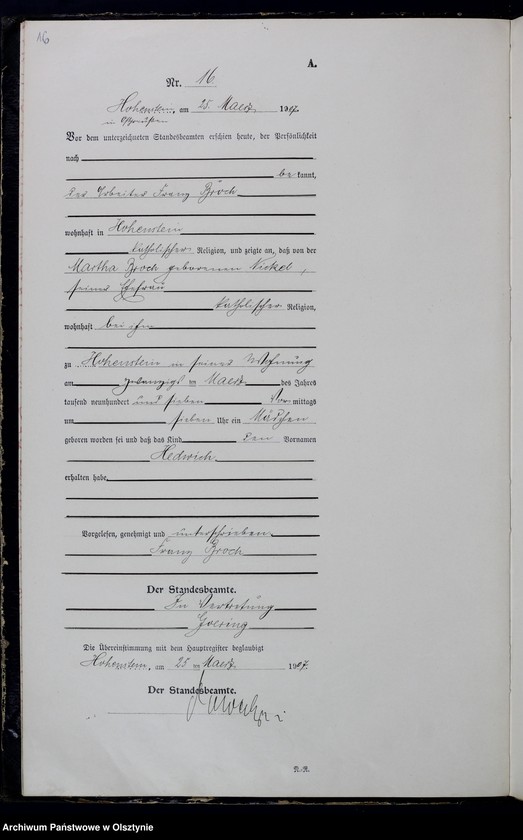 16
A.
Nr. 16
Hohenstein, am 25 Maerz 1907
in Ostpreußen
Vor dem unterzeichneten Standesbeamten erschien heute, der Persönlichkeit
nach
be kannt,
der Arbeiter Franz Broch
wohnhaft in Hohenstein
katholischer Religion, und zeigte an, daß von der
Martha Broch geborenen Nickel,
seiner Ehefrau
katholischer Religion,
wohnhaft bei ihm
zu Hohenstein in seiner Wohnung
am zwanzigsten Maerz des Jahres
tausend neunhundert und sieben Vor mittags
um sieben Uhr ein Mädchen
geboren worden sei und daß das Kind den Vornamen
Hedwich
erhalten habe.
Vorgelesen, genehmigt und unterschrieben
Franz Broch
Der Standesbeamte.
In Vertretung
Goering
Die Übereinstimmung mit dem Hauptregister beglaubigt
Hohenstein, am 25 ten Maerz 1907.
Der Standesbeamte.
Archiwum Państwowe w Olsztynie